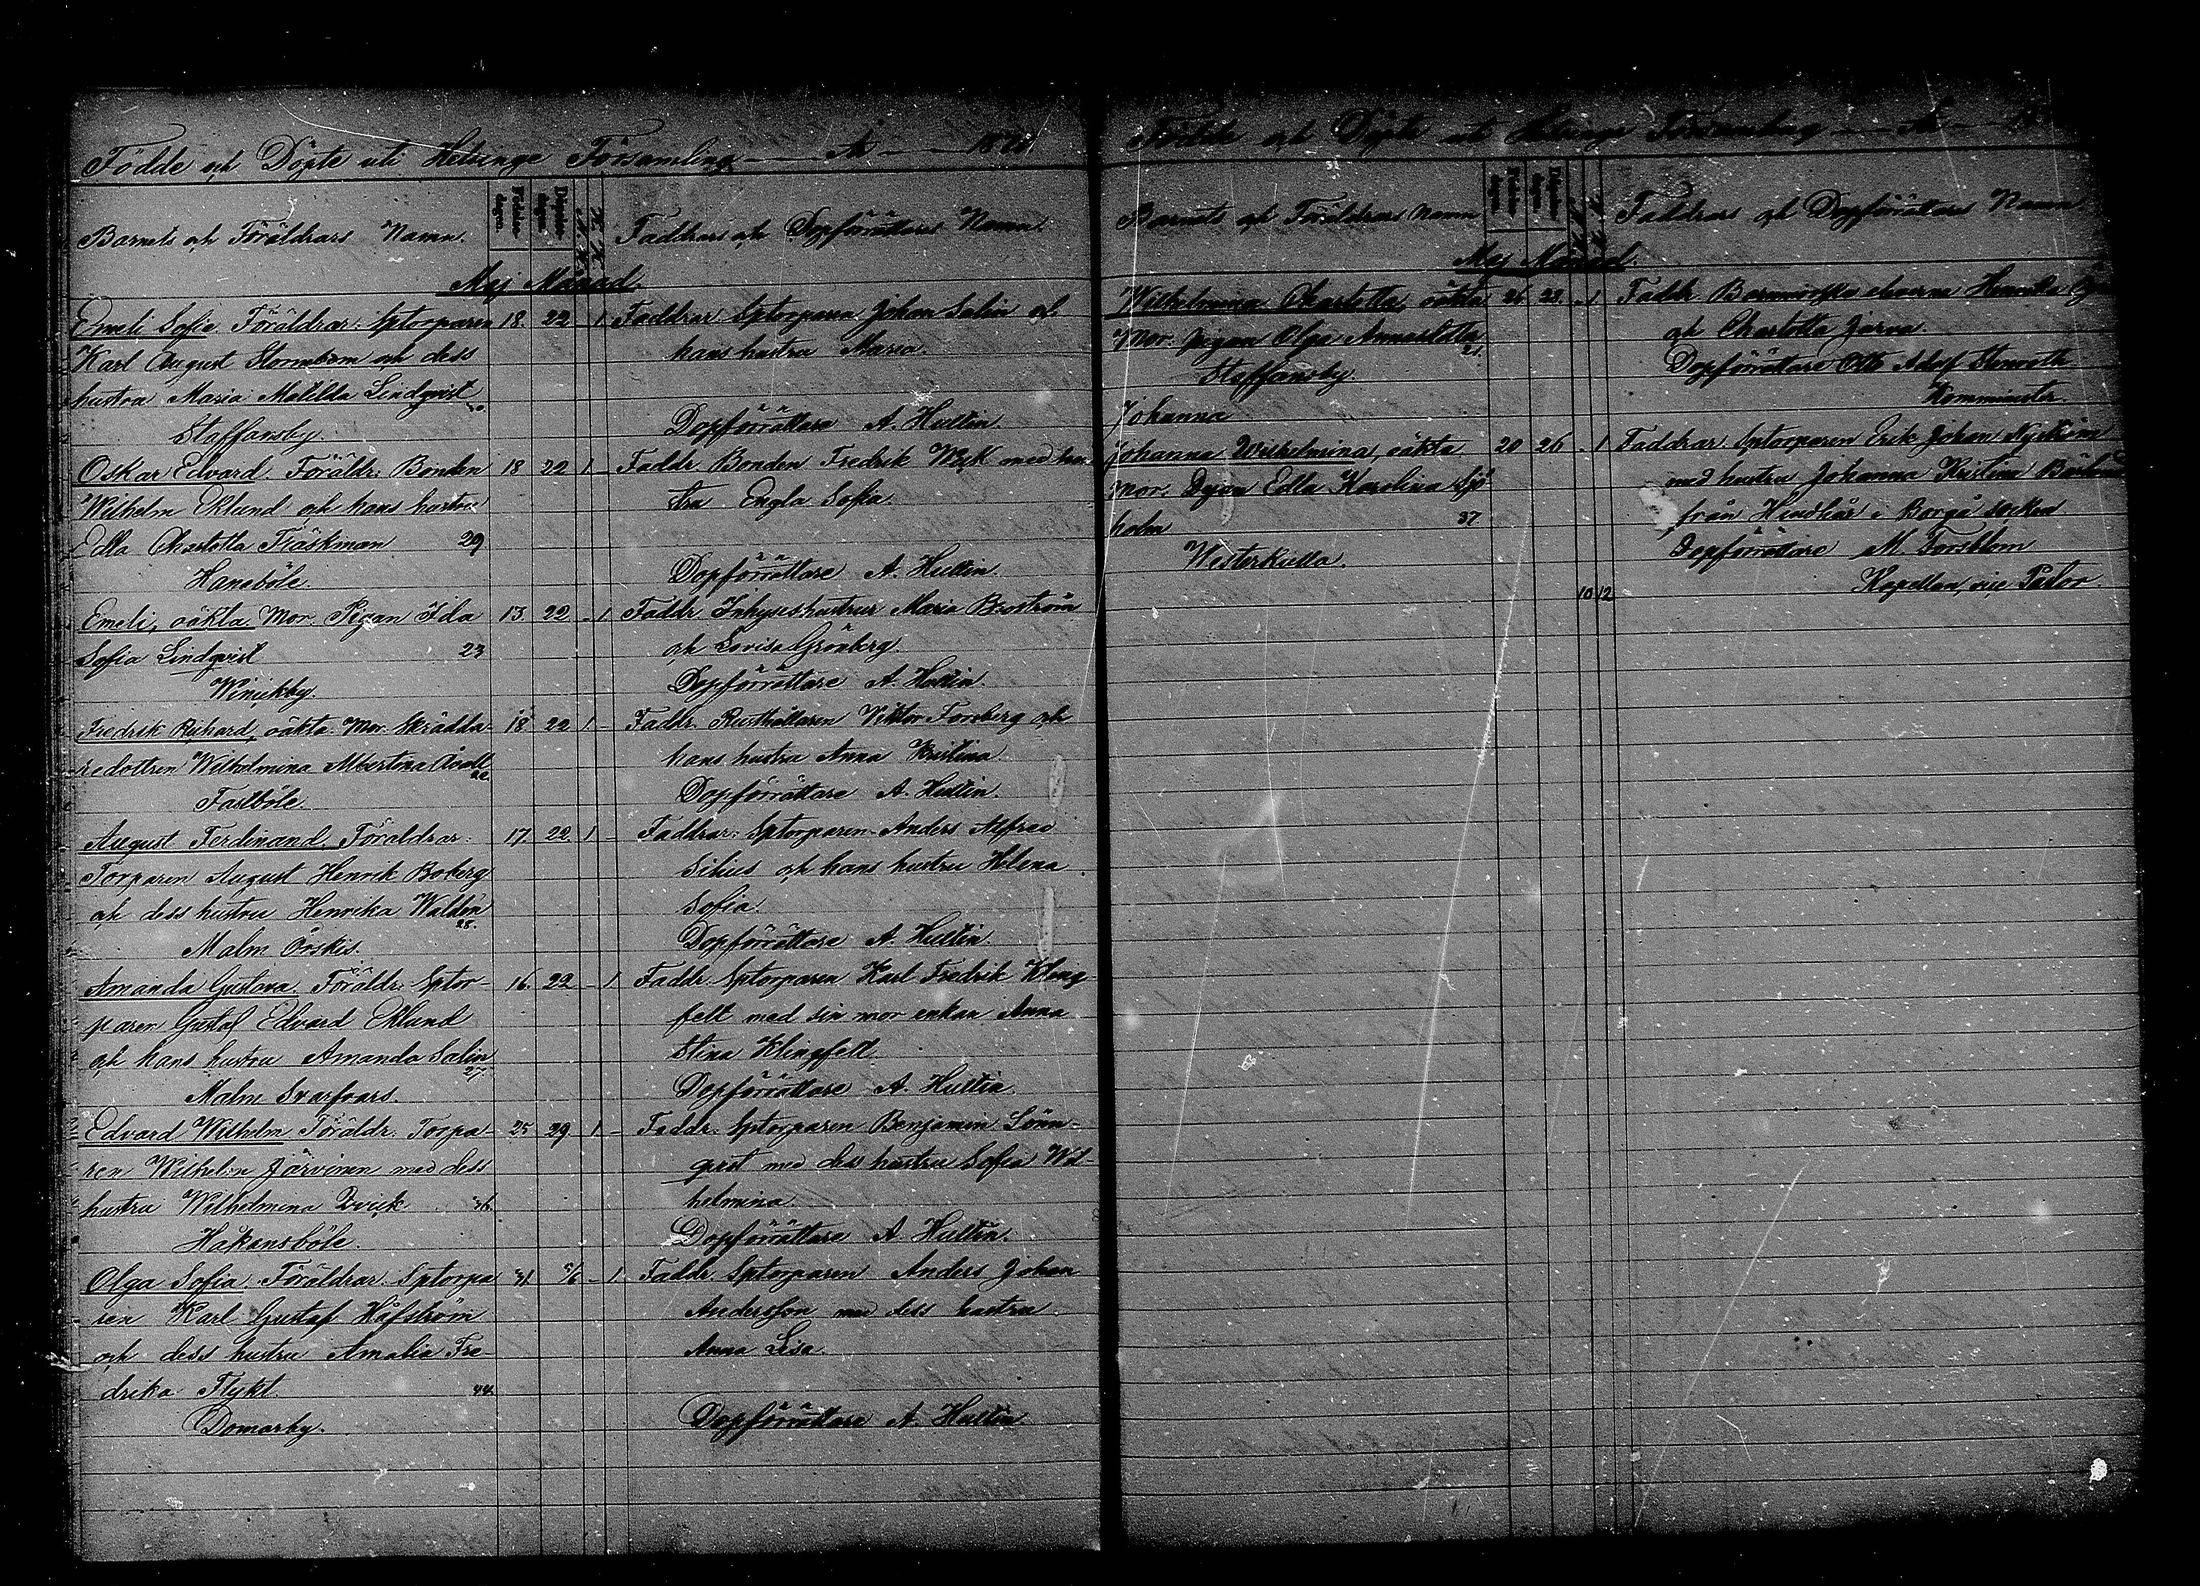 Födde och Döpte uti Helsinge Församling — År — 187
Barnets och Föräldrars Namn. Födelse- dagen. Döpelse- dagen. M. K. Q. K. Faddrars och Dopförrättares Namn.
Maj Månad.
Emeli Sofia Föräldrar: Sptorparen 18. 22 - 1 Faddrar: Sptorparen Johan Salin och
Karl August Stormbom och dess hans hustru Maria.
hustru Maria Matilda Lindqvist
Staffansby. Dopförrättare A. Hultin.
Oskar Edvard. Föräldr: Bonden 18 22 1 - Faddr. Bonden Fredrik Weck med hu-
Wilhelm Eklund och hans hustru stru Engla Sofia.
Edla Charlotta Träskman 29
Hanaböle. Dopförrättare A. Hultin.
Emeli, oäkta. Mor. Pigan Ida 13. 22 - 1 Faddr. Inhyseshustrur Maria Broström
Sofia Lindqvist 23 och Lovisa Grönberg.
Winickby. Dopförrättare A. Hultin.
Fredrik Rikhard, oäkta. Mor. Skrädda- 18 22 1 - Faddr. Rusthållaren Viktor Forsberg och
redottren Wilhelmina Albertina hans hustru Anna Kristina.
Fastböle. Dopförrättare A. Hultin.
August Ferdinand. Föräldrar: 17. 22. 1 - Faddrar: Sptorparen Anders Alfred
Torparen August Henrik Boberg Silius och hans hustru Helena
och dess hustru Henrika Waldén 28. Sofia.
Malm Örskis. Dopförrättare A. Hultin.
Amanda Gustava. Föräldr: Sptor- 16. 22. - 1 Faddr. Sptorparen Karl Fredrik Kling-
paren Gustaf Edvard Eklund felt med sin mor enkan Anna
och hans hustru Amanda Salin 27. Stina Klingfelt
Malm Svarfvars. Dopförrättare A. Hultin.
Edvard Wilhelm Föräldr. Torpa- 25 29 1 - Faddr. Sptorparen Benjamin Lönn-
ren Wilhelm Järvinen med dess qvist med dess hustru Sofia Wil-
hustru Wilhelmina Qvick. 36. helmina.
Håkansböle. Dopförrättare A. Hultin.
Olga Sofia. Föräldrar Sptorpa 31. 5/6 - 1 Faddr. Sptorparen Anders Johan
ren Karl Gustaf Håfström Andersson med dess hustru
och dess hustru Amalia Fre- Anna Lisa.
drika Flykt. 44.
Domarby. Dopförrättare A. Hultin.
Födde och Döpte uti Helsinge Församling — År —
Barnets och Föräldrars Namn Faddrars och Dopförrättares Namn
Maj Månad.
Wilhelmina Charlotta, oäkta 26 28 - 1 Faddr. Barnmorskeeleverna Henrika
Mor. pigan Olga Annaslotta 21. och Charlotta Järva.
Staffansby. Dopförrättare Otto Adolf Stenroth
Komminister.
Johanna
Johanna Wilhelmina, oäkta 20 26 - 1 Faddrar Sptorparen Erik Johan Nyström
Mor. Dejan Edla Karolina Sjö- med hustru Johanna Kristina
holm 37 från Hindhår i Borgå socken
Westerkulla. Dopförrättare M Forsblom
10 12 Kapellan, vice Pastor.